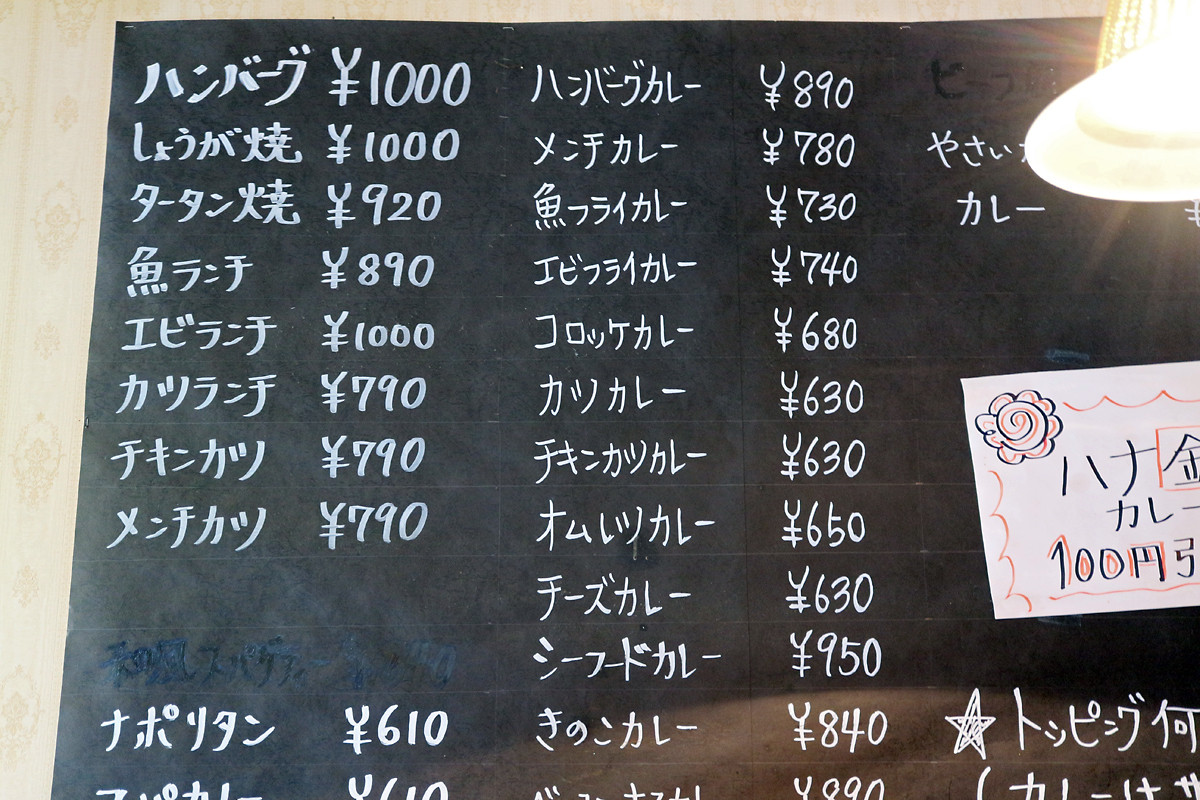 ハンバーグ ¥1000
しょうが焼 ¥1000
タータン焼 ¥920
魚ランチ ¥890
エビランチ ¥1000
カツランチ ¥790
チキンカツ ¥790
メンチカツ ¥790
和風スパゲティー
ナポリタン ¥610
スパカレー ¥610
ハンバーグカレー ¥890
メンチカレー ¥780
魚フライカレー ¥730
エビフライカレー ¥740
コロッケカレー ¥680
カツカレー ¥630
チキンカツカレー ¥630
オムレツカレー ¥650
チーズカレー ¥630
シーフードカレー ¥950
きのこカレー ¥840
¥890
やさい
カレー
ハナ金
カレー
100円引
☆トッピング何
(カレーは